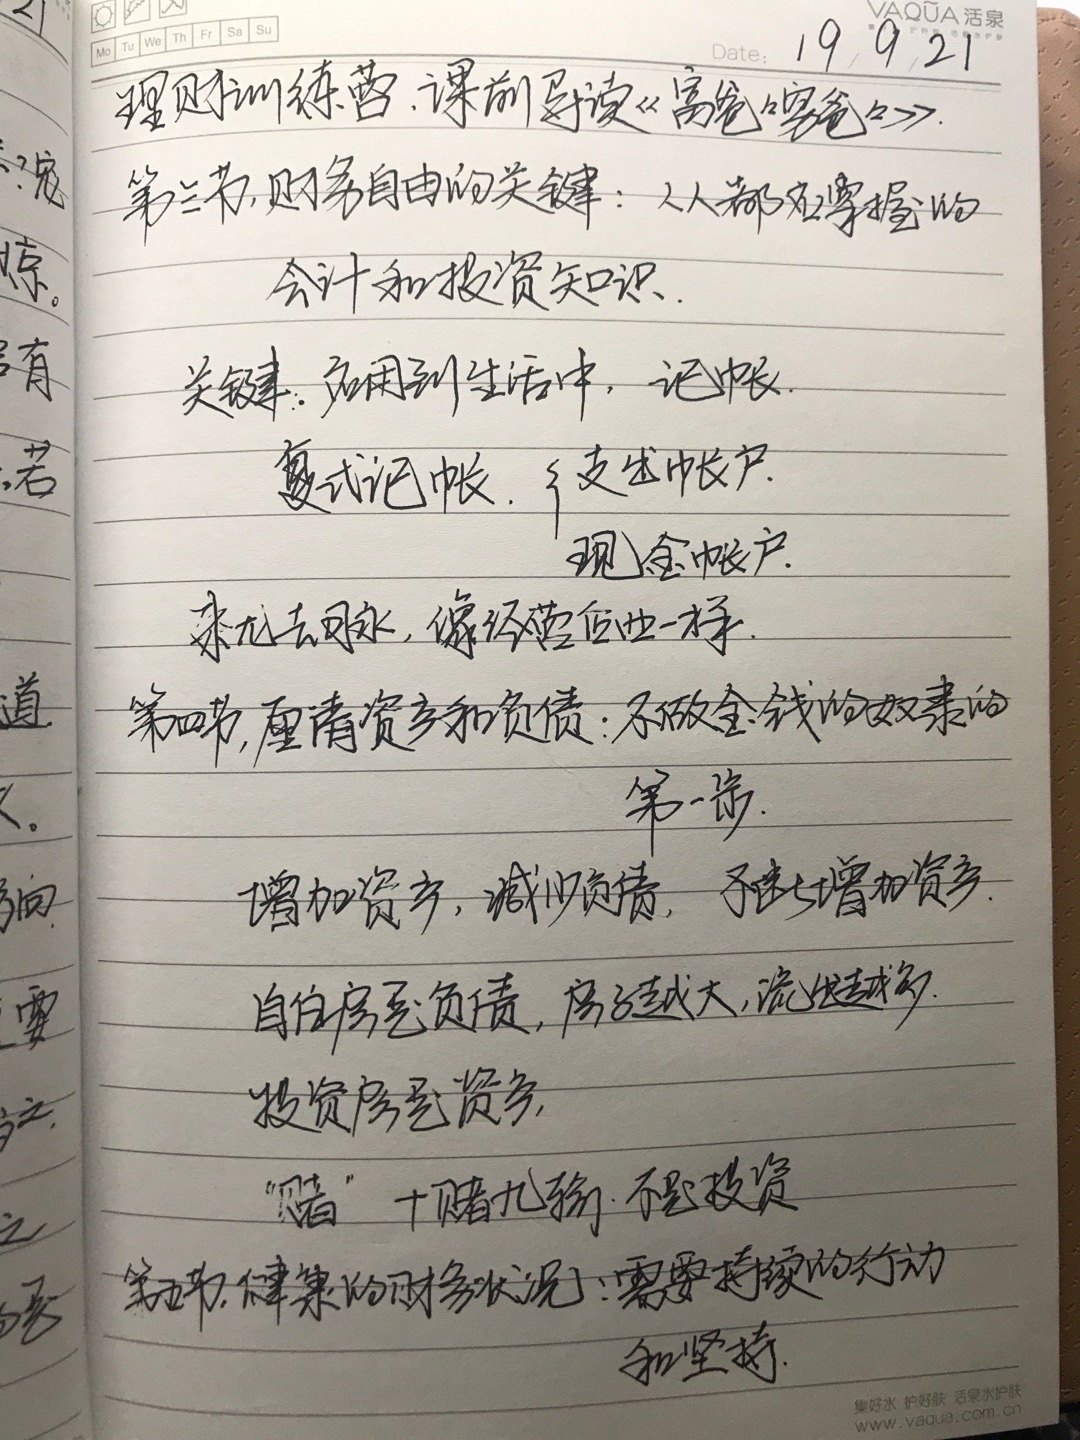 VAQUA 活泉
Mo Tu We Th Fr Sa Su
Date: 19 / 9 / 21
理财训练营.课前导读《富爸々穷爸々》.
第三节,财务自由的关键：人人都应掌握的
会计和投资知识.
关键：应用到生活中，记帐.
复式记帐. { 支出帐户.
现金帐户.
来龙去脉，像经营企业一样.
第四节,厘清资产和负债：不做金钱的奴隶的
第一步.
增加资产，减少负债， 增加资产.
自住房是负债，房子越大，流出越多.
投资房是资产，
“赌” 十赌九输.不是投资
第五节.健康的财务状况：需要持续的行动
和坚持.
集好水 护好肤 活泉水护肤
www.vaqua.com.cn
道
有
若
响
要